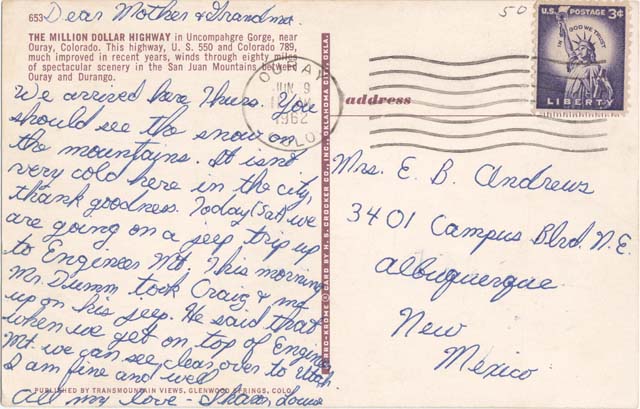 50
653 Dear Mother & Grandma.
THE MILLION DOLLAR HIGHWAY in Uncompahgre Gorge, near
Ouray, Colorado. This highway, U. S. 550 and Colorado 789,
much improved in recent years, winds through eighty miles
of spectacular scenery in the San Juan Mountains between
Ouray and Durango.
We arrived here Thurs. You
should see the snow on
the mountains. It isn't
very cold here in the city,
thank goodness. Today (Sat) we
are going on a jeep trip up
to Engineer Mt. This morning
Mr. Dumm took Craig & me
up on his jeep. He said that
when we get on top of Engineer
Mt. we can see clear over to Utah.
I am fine and well.
All my love - Louise
PUBLISHED BY TRANSMOUNTAIN VIEWS, GLENWOOD SPRINGS, COLO.
CARD BY H. S. CROCKER CO., INC., OKLAHOMA CITY, OKLA.
OURAY
JUN 9
1962
COLO.
address
U.S. POSTAGE 3¢
IN GOD WE TRUST
LIBERTY
Mrs. E. B. Andrews
3401 Campus Blvd. N.E.
Albuquerque
New
Mexico